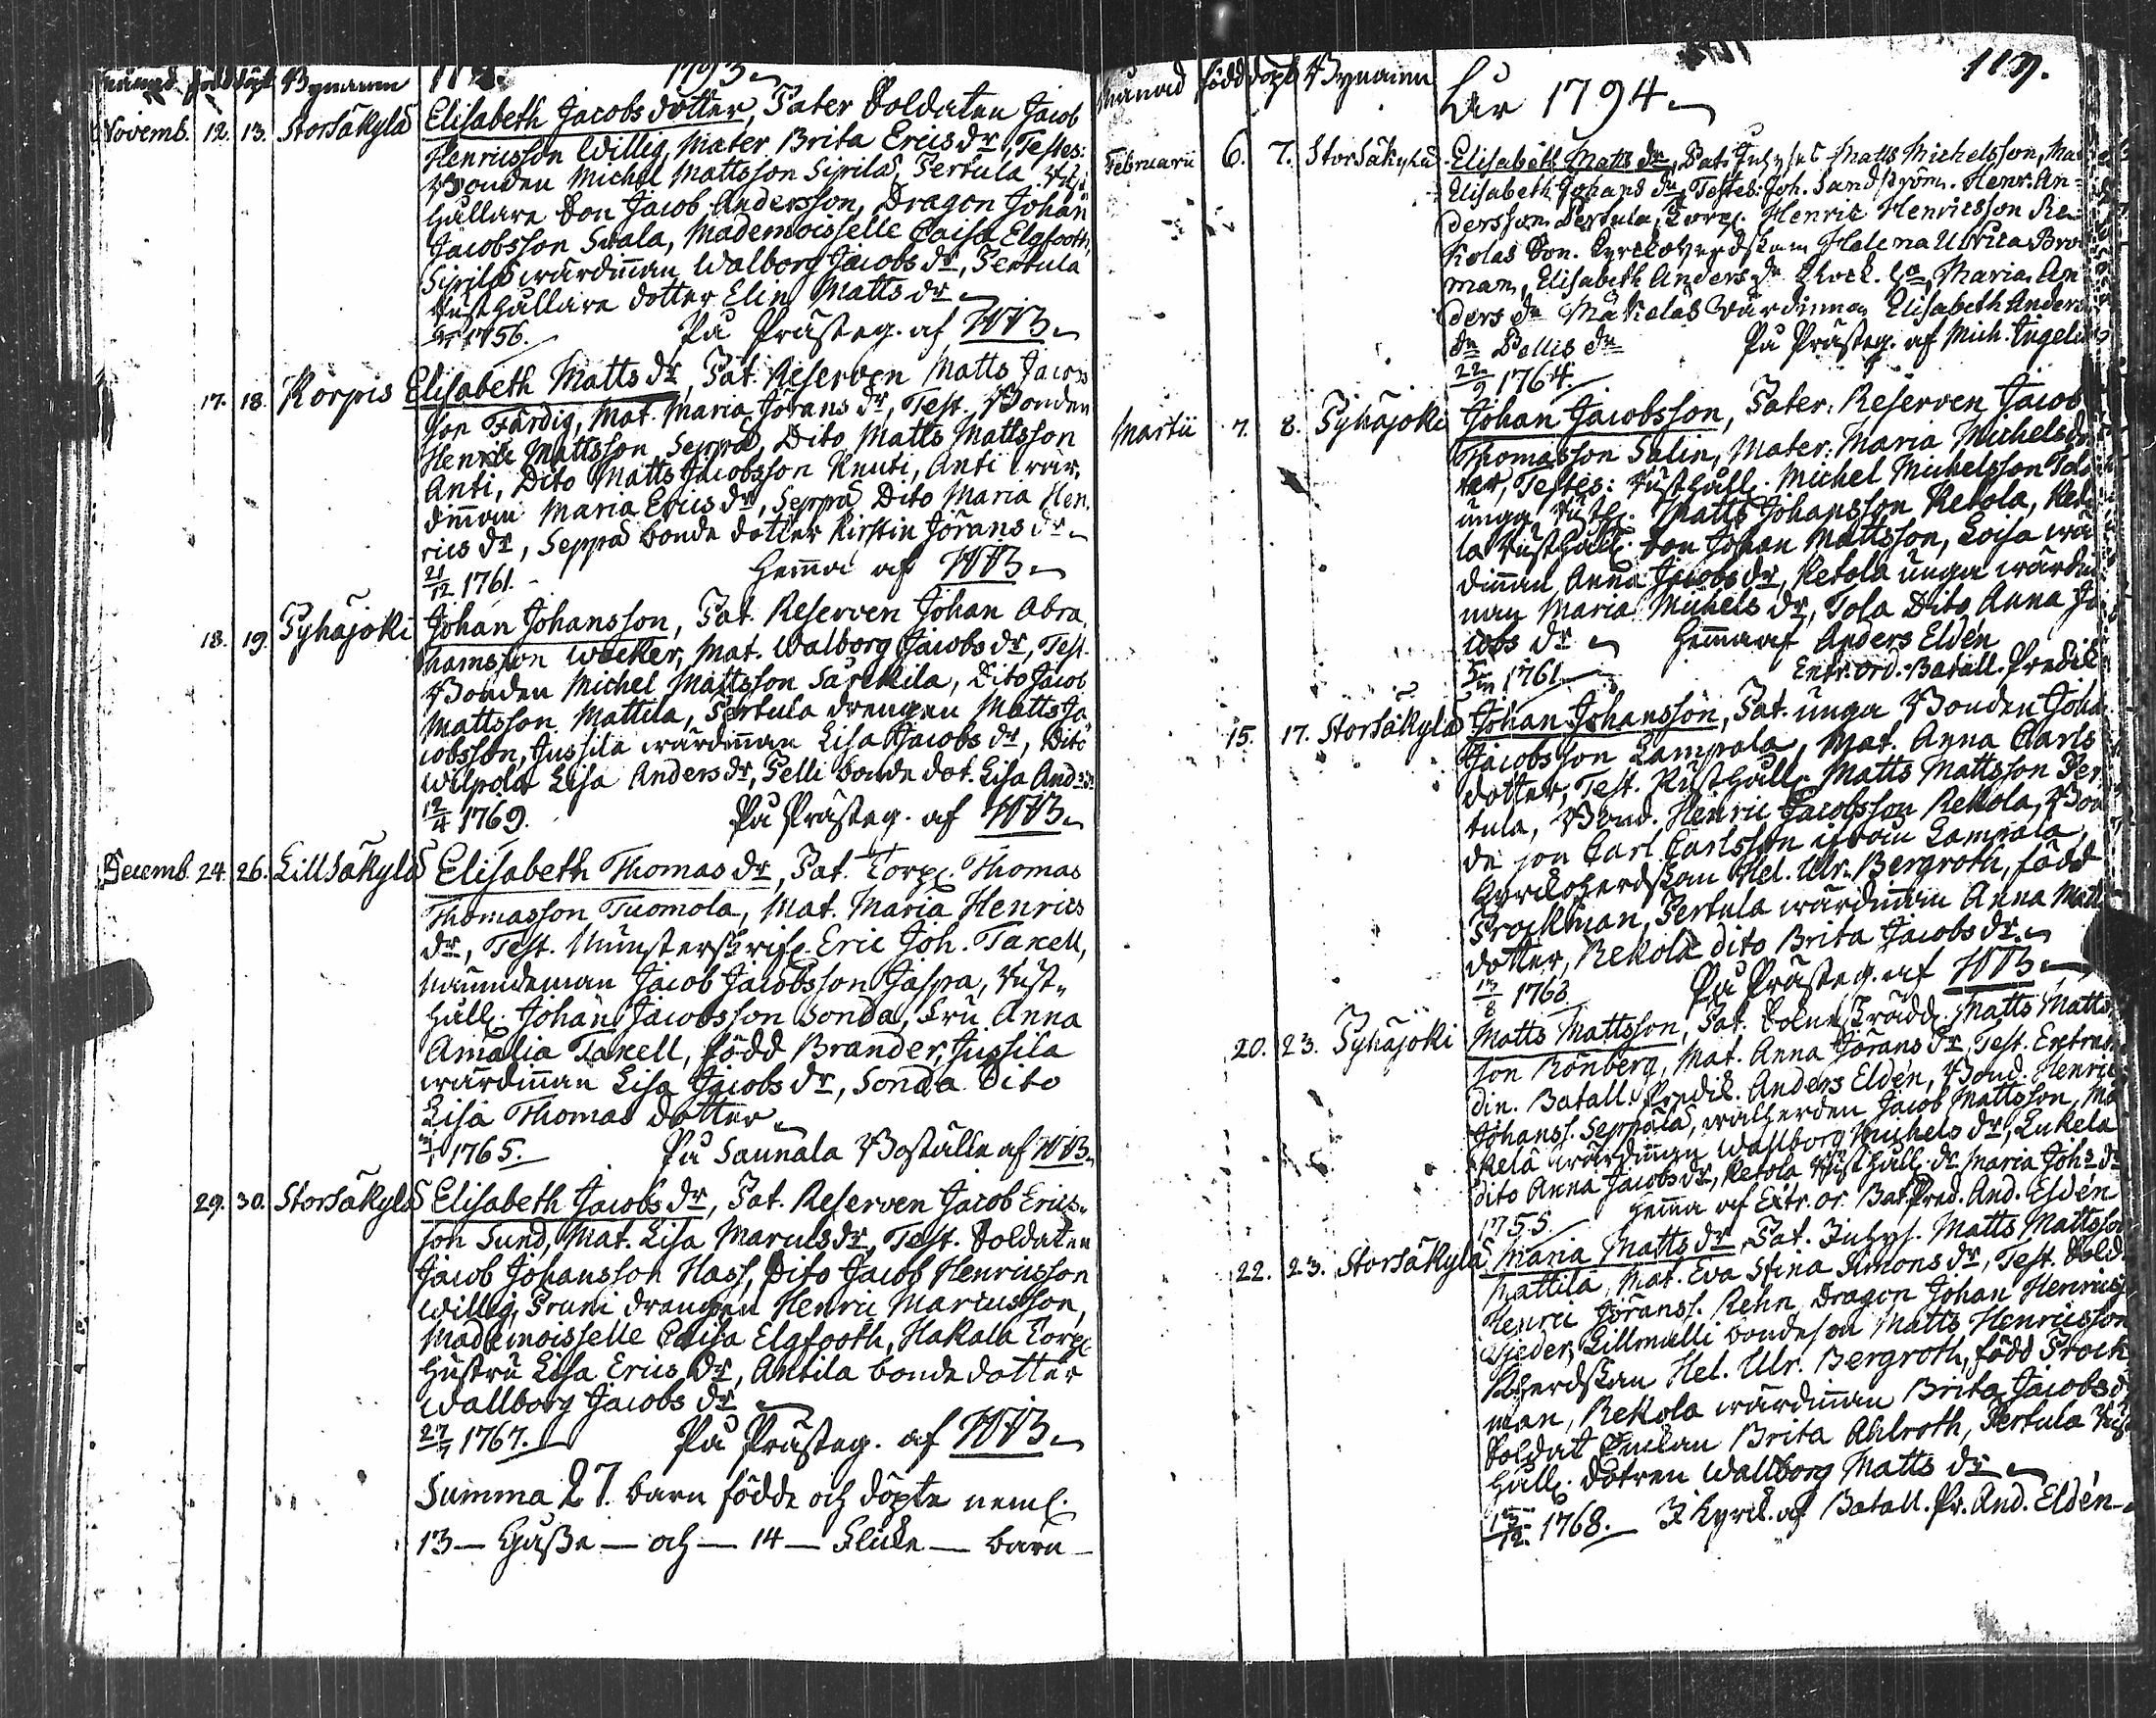 Månad född döpt Bynamn 118. 1793
Novemb. 12. 13. Storsäkylä Elisabeth Jacobs dotter, Pater Soldaten Jacob
Henricsson Willig, Mater Brita Erics dr, Testes:
Bonden Michel Mattsson Sipilä, Pertula Rust
hållare Son Jacob Andersson, Dragon Johan
Jacobsson Svala, Mademoiselle Caisa Elgfooth,
Sipilä wärdinnan Walborg Jacobs dr, Pertula
Rusthållare dotter Elin Matts dr
1756. På Prästeg. af WB
17. 18. Korpis Elisabeth Matts dr, Pat. Reserven Matts Jacobs
son Färdig, Mat. Maria Jörans dr, Test. Bonden
Henric Mattsson Seppä, Dito Matts Mattsson
Anti, Dito Matts Jacobsson Knuti, Anti wär
dinnan Maria Erics dr, Seppä Dito Maria Hen
rics dr, Seppä bonde dotter Kirstin Jörans dr
21/12 1761. Hemma af WB
18. 19. Pyhäjoki Johan Johansson, Pat. Reserven Johan Abra
hamsson Wacker, Mat. Walborg Jacobs dr, Test.
Bonden Michel Mattsson Särkilä, Dito Jacob
Mattsson Mattila, Pertula drengen Matts Ja
cobsson, Jussila wärdinnan Lisa Jacobs dr, Dito
Wilpola Lisa Anders dr, Pelli bonde dot. Lisa And:s dr
12/4 1769. På Prästeg. af WB
Decemb. 24. 26. Lillsäkylä Elisabeth Thomas dr, Pat. Torp. Thomas
Thomasson Tuomola, Mat. Maria Henrics
dr, Test. Munsterskrif. Eric Joh. Taxell,
Nämndeman Jacob Jacobsson Jaspa, Rust-
håll. Johan Jacobsson Sonda, Fru Anna
Amalia Taxell, född Brander, Jussila
wärdinnan Lisa Jacobs dr, Sonda Dito
Lisa Thomas dotter
1765. På Saunala Boställe af WB
29. 30. Storsäkylä Elisabeth Jacobs dr, Pat. Reserven Jacob Erics-
son Sund, Mat. Lisa Marcus dr, Test. Soldaten
Jacob Johansson Hass, Dito Jacob Henricsson
Willig, Pruni drengen Henric Marcusson,
Mademoiselle Caisa Elgfooth, Hakala Torp.
hustru Lisa Erics dr, Antila bonde dotter
Wallborg Jacobs dr
27/7 1767. På Prästeg. af WB
Summa 27. barn födde och döpte neml.
13 — Gåsse — och — 14 — Flicke — barn
Månad född döpt Bynamn Åhr 1794 119.
Februarii 6. 7. Storsäkylä Elisabeth Matts dr, Pat. Inhyses Matts Michelsson, Ma
Elisabeth Johans dr, Testes: Joh. Sandström. Henr. An-
dersson Pertula, Torp. Henric Henricsson Re
kolas Son. Kyrckoherdskan Helena Ulrica Brock
man, Elisabeth Anders dr Maria An
ders dr Mäkeläs Wärdinnan Elisabeth Anders
dr Pellis dr På Prästeg. af Mich. Ingeli
22/9 1764.
Martii 7. 8. Pyhäjoki Johan Jacobsson, Pater: Reserven Jacob
Thomasson Salin, Mater: Maria Michels do
ter, Testes: Rusthåll. Michel Michelsson Tola
unga Rusth. Matts Johansson Ketola, Keto
la Rusthåll. Son Johan Mattsson, Loisa wär
dinnan Anna Jacobs dr, Ketola unga wärdin
nan Maria Michels dr, Tola Dito Anna Ja
cobs dr Hemma af Anders Eldén
1761. Extr. Ord. Batall. Predik
15. 17. Storsäkylä Johan Johansson, Pat. unga Bonden Johan
Jacobsson Lampola, Mat. Anna Carls
dotter, Test. Rusthåll. Matts Mattsson Per
tula, Bond. Henric Jacobsson Rekola, Bon
de son Carl Carlsson ifrån Lampola,
Kyrckoherdskan Hel. Ulr. Bergroth, född
Prockman, Pertula wärdinnan Anna Matts
dotter, Rekola dito Brita Jacobs dr
13/8 1768. På Prästeg. af WB
20. 23. Pyhäjoki Matts Mattsson, Pat. Matts Matts
son Rönberg, Mat. Anna Jörans dr Test. Extraor
din. Batall. Predik. Anders Eldén, Bond. Henric
Johanss. Seppälä, Jacob Mattsson, Mä
kelä wärdinnan Wallborg Michels dr, Eukela
dito Anna Jacobs dr, Ketola Rusthåll. dr Maria Joh:s dr
1755 Hemma af Extr. or. Bat. Pred. And. Eldén
22. 23. Storsäkylä Maria Matts dr Pat. Inhys. Matts Mattsson
Mattila, Mat. Eva Stina Simons dr, Test. Sold.
Henric Jöranss. Rehn, Dragon Johan Henricss
Fjeder, Lillmälli bondeson Matts Henricsson
K.herdskan Hel. Ulr. Bergroth, född Prock
man, Rekola wärdinnan Brita Jacobs d
Soldat Enckan Brita Ahlroth, Pertula Rust
håll. dotren Wallborg Matts dr
13/12 1768. I Kyrck. af Batall. Pr. And. Eldén